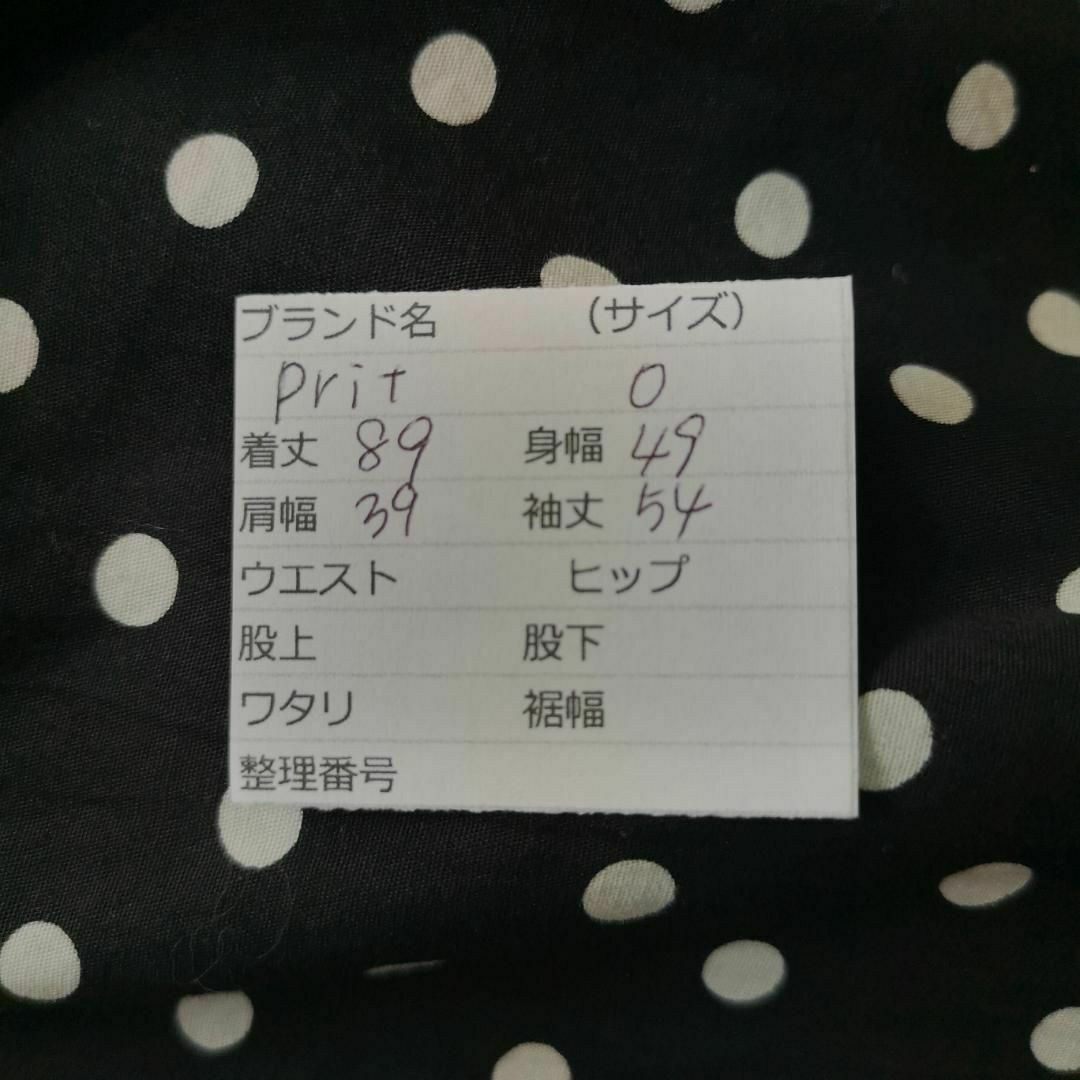 ブランド名 （サイズ）
prit 0
着丈 89 身幅 49
肩幅 39 袖丈 54
ウエスト ヒップ
股上 股下
ワタリ 裾幅
整理番号